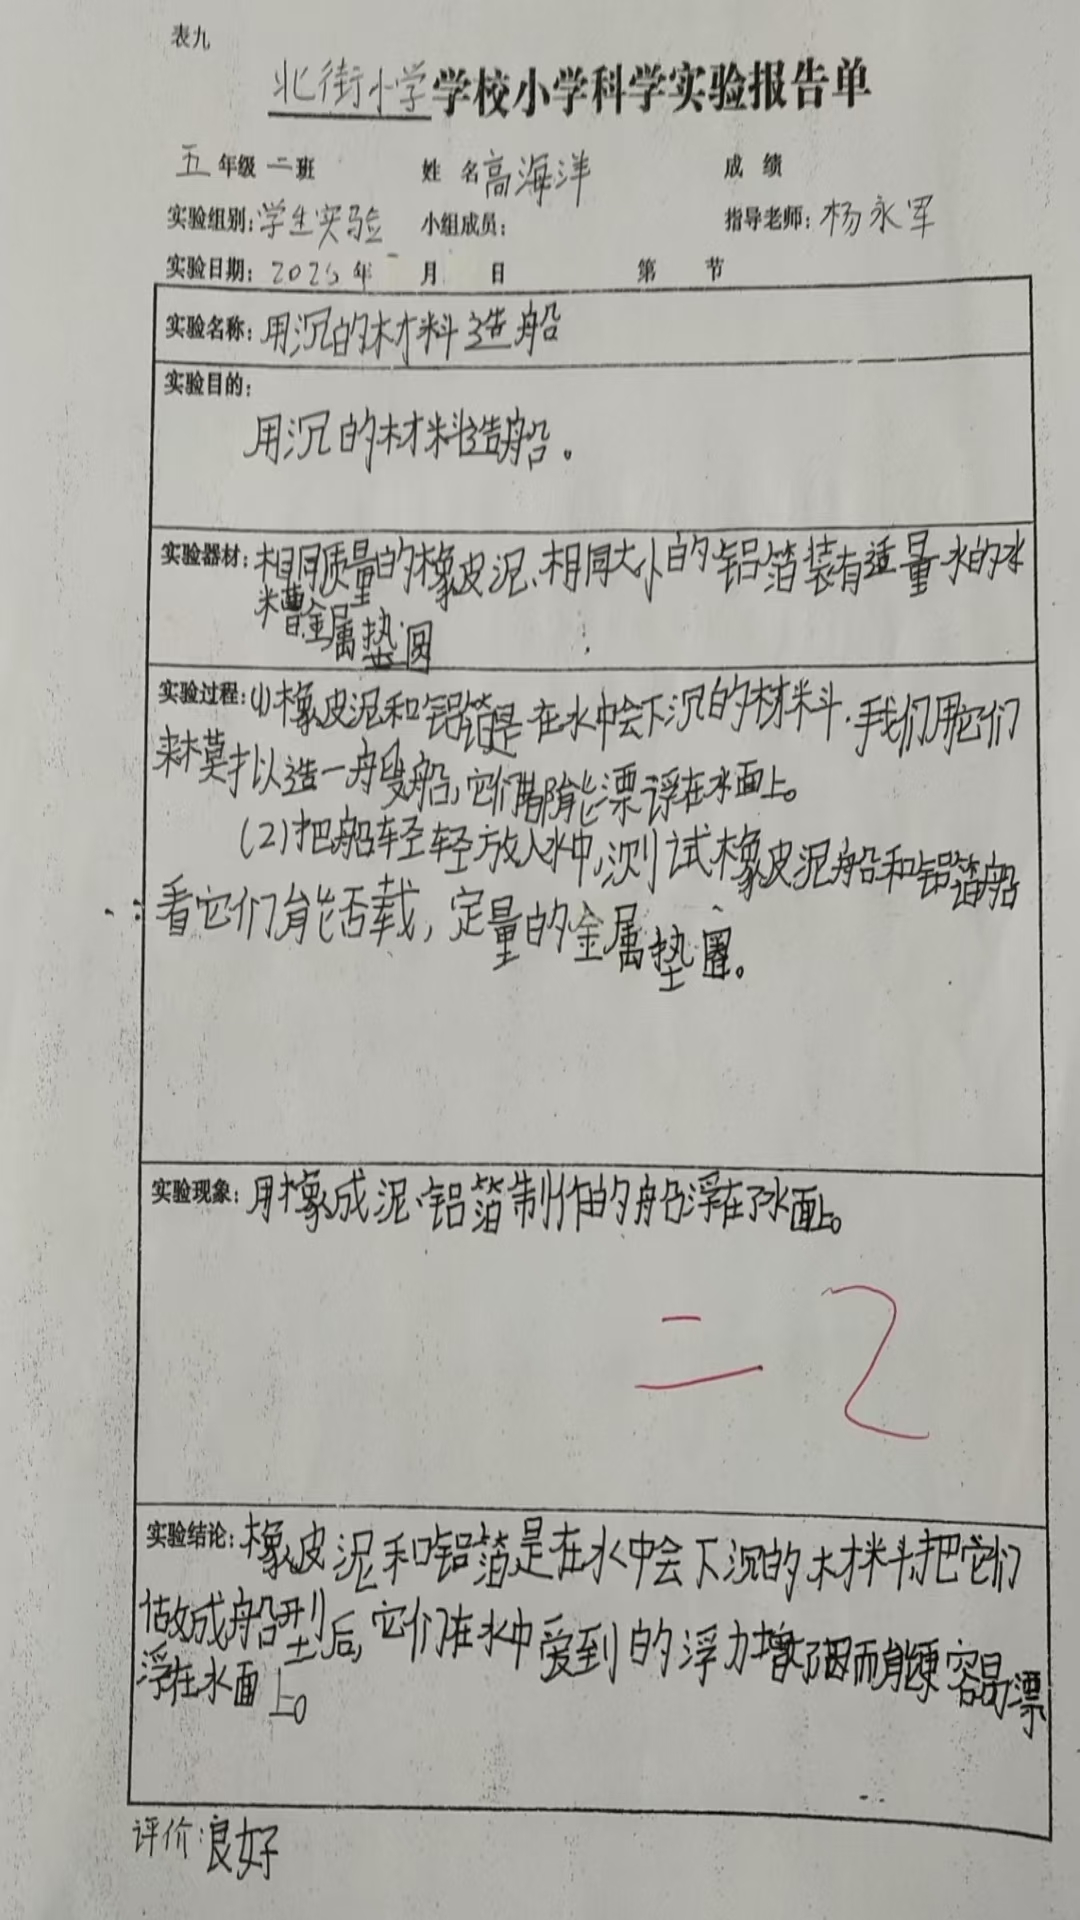 表九
北街小学学校小学科学实验报告单
五年级二班 姓名高海洋 成绩
实验组别:学生实验 小组成员: 指导老师:杨永军
实验日期:2025年 月 日 第 节
实验名称:用沉的材料造船
实验目的:
用沉的材料造船。
实验器材:相同质量的橡皮泥、相同大小的铝箔装有适量水的水
槽金属垫圆
实验过程:(1)橡皮泥和铝箔是在水中会下沉的材料.我们用它们
来模拟造一艘船,它们都能漂浮在水面上。
(2)把船轻轻放入水中,测试橡皮泥船和铝箔船
看它们能否载,定量的金属垫圈。
实验现象:用橡成泥、铝箔制作的船浮在了水面上。
二 乙
实验结论:橡皮泥和铝箔是在水中会下沉的材料,把它们
做成船型后,它们在水中受到的浮力增大了因而能更容易漂
浮在水面上。
评价:良好